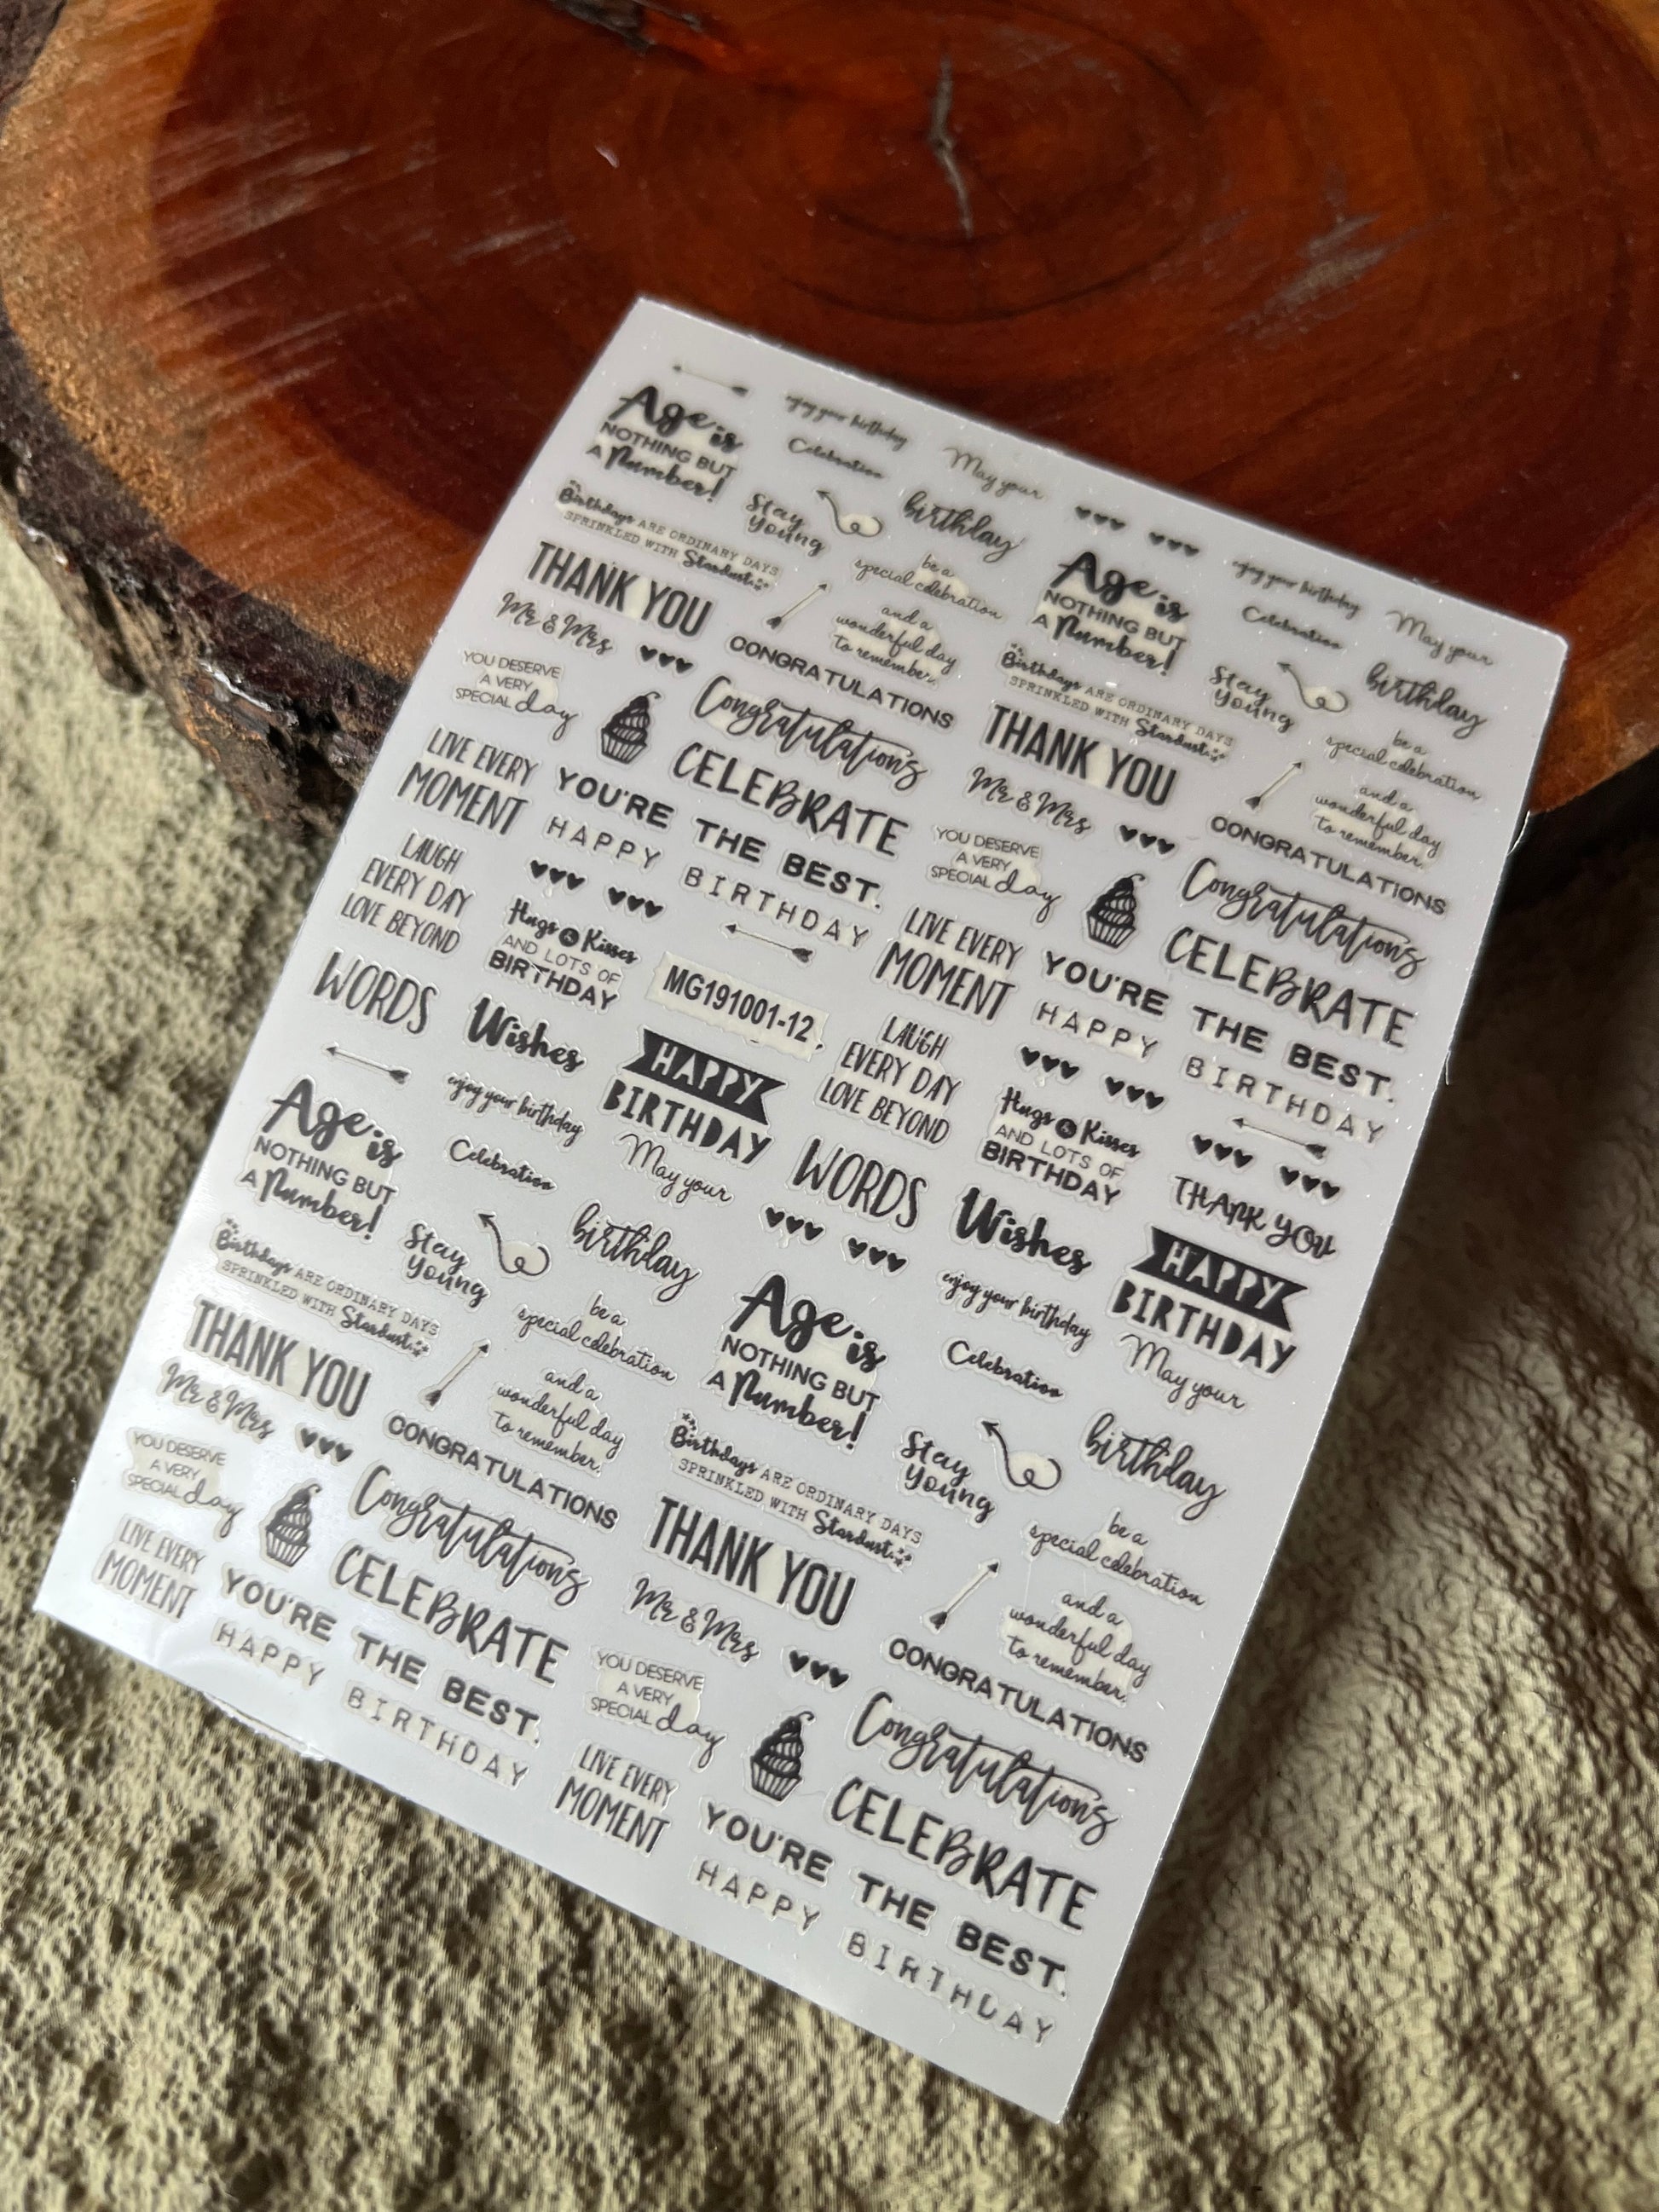 Age is
NOTHING BUT
A Number!
enjoy your birthday
Celebration
May your
Birthdays ARE ORDINARY DAYS
SPRINKLED WITH Stardust
Stay
young
birthday
THANK YOU
be a
special celebration
Mr & Mrs
and a
wonderful day
to remember.
CONGRATULATIONS
YOU DESERVE
A VERY
SPECIAL day
Congratulations
LIVE EVERY
MOMENT
CELEBRATE
YOU'RE THE BEST.
HAPPY BIRTHDAY
LAUGH
EVERY DAY
LOVE BEYOND
Hugs & Kisses
AND LOTS OF
BIRTHDAY
MG191001-12
WORDS
Wishes
HAPPY
BIRTHDAY
Age is
NOTHING BUT
A Number!
enjoy your birthday
Celebration
May your
Birthdays ARE ORDINARY DAYS
SPRINKLED WITH Stardust
Stay
young
birthday
THANK YOU
be a
special celebration
Mr & Mrs
and a
wonderful day
to remember.
CONGRATULATIONS
YOU DESERVE
A VERY
SPECIAL day
Congratulations
LIVE EVERY
MOMENT
CELEBRATE
YOU'RE THE BEST.
HAPPY BIRTHDAY
LAUGH
EVERY DAY
LOVE BEYOND
Hugs & Kisses
AND LOTS OF
BIRTHDAY
THANK YOU
WORDS
Wishes
HAPPY
BIRTHDAY
Age is
NOTHING BUT
A Number!
enjoy your birthday
Celebration
May your
Birthdays ARE ORDINARY DAYS
SPRINKLED WITH Stardust
Stay
young
birthday
THANK YOU
be a
special celebration
Mr & Mrs
and a
wonderful day
to remember.
CONGRATULATIONS
YOU DESERVE
A VERY
SPECIAL day
Congratulations
LIVE EVERY
MOMENT
CELEBRATE
YOU'RE THE BEST.
HAPPY BIRTHDAY
Age is
NOTHING BUT
A Number!
enjoy your birthday
Celebration
May your
Birthdays ARE ORDINARY DAYS
SPRINKLED WITH Stardust
Stay
young
birthday
THANK YOU
be a
special celebration
Mr & Mrs
and a
wonderful day
to remember.
CONGRATULATIONS
YOU DESERVE
A VERY
SPECIAL day
Congratulations
LIVE EVERY
MOMENT
CELEBRATE
YOU'RE THE BEST.
HAPPY BIRTHDAY